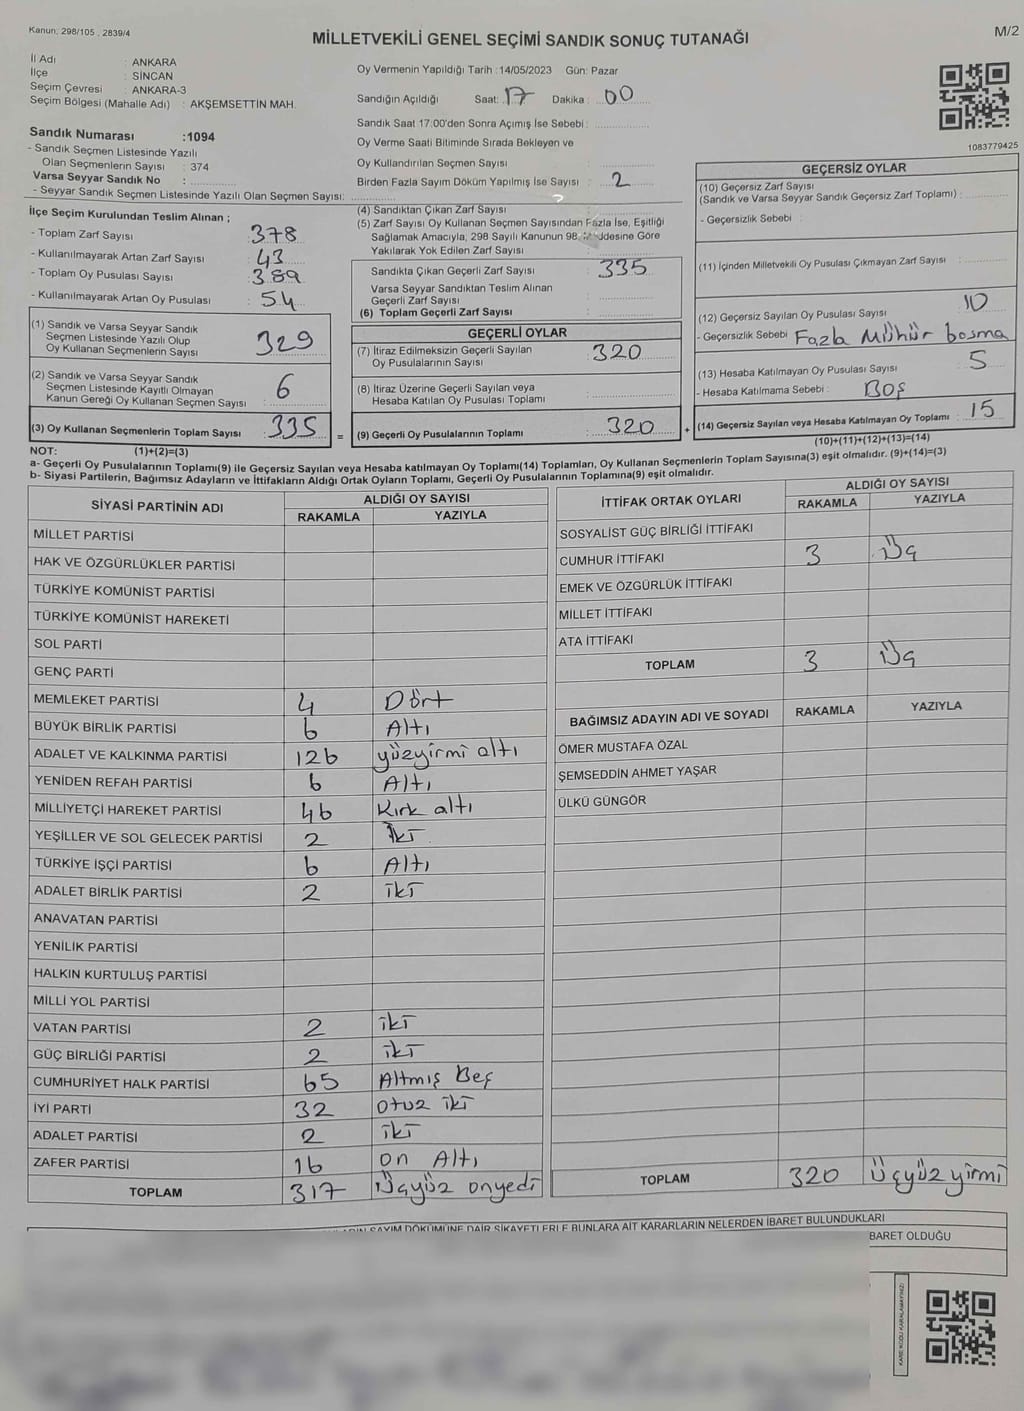 Kanun, 298/105 , 2839/4
MİLLETVEKİLİ GENEL SEÇİMİ SANDIK SONUÇ TUTANAĞI
M/2
İl Adı : ANKARA
İlçe : SİNCAN
Seçim Çevresi : ANKARA-3
Seçim Bölgesi (Mahalle Adı) : AKŞEMSETTİN MAH.
Sandık Numarası :1094
- Sandık Seçmen Listesinde Yazılı
Olan Seçmenlerin Sayısı : 374
Varsa Seyyar Sandık No :
- Seyyar Sandık Seçmen Listesinde Yazılı Olan Seçmen Sayısı:
Oy Vermenin Yapıldığı Tarih :14/05/2023 Gün: Pazar
Sandığın Açıldığı Saat: 17 Dakika : 00
Sandık Saat 17:00'den Sonra Açımış İse Sebebi :
Oy Verme Saati Bitiminde Sırada Bekleyen ve
Oy Kullandırılan Seçmen Sayısı :
Birden Fazla Sayım Döküm Yapılmış İse Sayısı : 2
1083779425
İlçe Seçim Kurulundan Teslim Alınan ;
- Toplam Zarf Sayısı : 378
- Kullanılmayarak Artan Zarf Sayısı : 43
- Toplam Oy Pusulası Sayısı : 389
- Kullanılmayarak Artan Oy Pusulası : 54
(1) Sandık ve Varsa Seyyar Sandık
Seçmen Listesinde Yazılı Olup
Oy Kullanan Seçmenlerin Sayısı : 329
(2) Sandık ve Varsa Seyyar Sandık
Seçmen Listesinde Kayıtlı Olmayan
Kanun Gereği Oy Kullanan Seçmen Sayısı : 6
(3) Oy Kullanan Seçmenlerin Toplam Sayısı : 335
(1)+(2)=(3)
(4) Sandıktan Çıkan Zarf Sayısı
(5) Zarf Sayısı Oy Kullanan Seçmen Sayısından Fazla İse, Eşitliği
Sağlamak Amacıyla, 298 Sayılı Kanunun 98. Maddesine Göre
Yakılarak Yok Edilen Zarf Sayısı
Sandıkta Çıkan Geçerli Zarf Sayısı : 335
Varsa Seyyar Sandıktan Teslim Alınan
Geçerli Zarf Sayısı
(6) Toplam Geçerli Zarf Sayısı
GEÇERLİ OYLAR
(7) İtiraz Edilmeksizin Geçerli Sayılan
Oy Pusulalarının Sayısı : 320
(8) İtiraz Üzerine Geçerli Sayılan veya
Hesaba Katılan Oy Pusulası Toplamı :
= (9) Geçerli Oy Pusulalarının Toplamı : 320 +
GEÇERSİZ OYLAR
(10) Geçersiz Zarf Sayısı
(Sandık ve Varsa Seyyar Sandık Geçersiz Zarf Toplamı) :
- Geçersizlik Sebebi :
(11) İçinden Milletvekili Oy Pusulası Çıkmayan Zarf Sayısı :
(12) Geçersiz Sayılan Oy Pusulası Sayısı : 10
- Geçersizlik Sebebi Fazla Mühür basma
(13) Hesaba Katılmayan Oy Pusulası Sayısı : 5
- Hesaba Katılmama Sebebi : Boş
(14) Geçersiz Sayılan veya Hesaba Katılmayan Oy Toplamı : 15
(10)+(11)+(12)+(13)=(14)
NOT:
a- Geçerli Oy Pusulalarının Toplamı(9) ile Geçersiz Sayılan veya Hesaba katılmayan Oy Toplamı(14) Toplamları, Oy Kullanan Seçmenlerin Toplam Sayısına(3) eşit olmalıdır. (9)+(14)=(3)
b- Siyasi Partilerin, Bağımsız Adayların ve İttifakların Aldığı Ortak Oyların Toplamı, Geçerli Oy Pusulalarının Toplamına(9) eşit olmalıdır.
SİYASİ PARTİNİN ADI ALDIĞI OY SAYISI
RAKAMLA YAZIYLA
MİLLET PARTİSİ
HAK VE ÖZGÜRLÜKLER PARTİSİ
TÜRKİYE KOMÜNİST PARTİSİ
TÜRKİYE KOMÜNİST HAREKETİ
SOL PARTİ
GENÇ PARTİ
MEMLEKET PARTİSİ 4 Dört
BÜYÜK BİRLİK PARTİSİ 6 Altı
ADALET VE KALKINMA PARTİSİ 126 yüzyirmi altı
YENİDEN REFAH PARTİSİ 6 Altı
MİLLİYETÇİ HAREKET PARTİSİ 46 Kırk altı
YEŞİLLER VE SOL GELECEK PARTİSİ 2 İki
TÜRKİYE İŞÇİ PARTİSİ 6 Altı
ADALET BİRLİK PARTİSİ 2 iki
ANAVATAN PARTİSİ
YENİLİK PARTİSİ
HALKIN KURTULUŞ PARTİSİ
MİLLİ YOL PARTİSİ
VATAN PARTİSİ 2 iki
GÜÇ BİRLİĞİ PARTİSİ 2 iki
CUMHURİYET HALK PARTİSİ 65 Altmış Beş
İYİ PARTİ 32 otuz iki
ADALET PARTİSİ 2 iki
ZAFER PARTİSİ 16 on Altı
TOPLAM 317 Üçyüz onyedi
İTTİFAK ORTAK OYLARI ALDIĞI OY SAYISI
RAKAMLA YAZIYLA
SOSYALİST GÜÇ BİRLİĞİ İTTİFAKI
CUMHUR İTTİFAKI 3 Üç
EMEK VE ÖZGÜRLÜK İTTİFAKI
MİLLET İTTİFAKI
ATA İTTİFAKI
TOPLAM 3 Üç
BAĞIMSIZ ADAYIN ADI VE SOYADI RAKAMLA YAZIYLA
ÖMER MUSTAFA ÖZAL
ŞEMSEDDİN AHMET YAŞAR
ÜLKÜ GÜNGÖR
TOPLAM 320 Üçyüz yirmi
SAYIM DÖKÜMÜNE DAİR ŞİKAYETLERLE BUNLARA AİT KARARLARIN NELERDEN İBARET BULUNDUKLARI
BARET OLDUĞU
KARE KODU KARALAMAYINIZ!